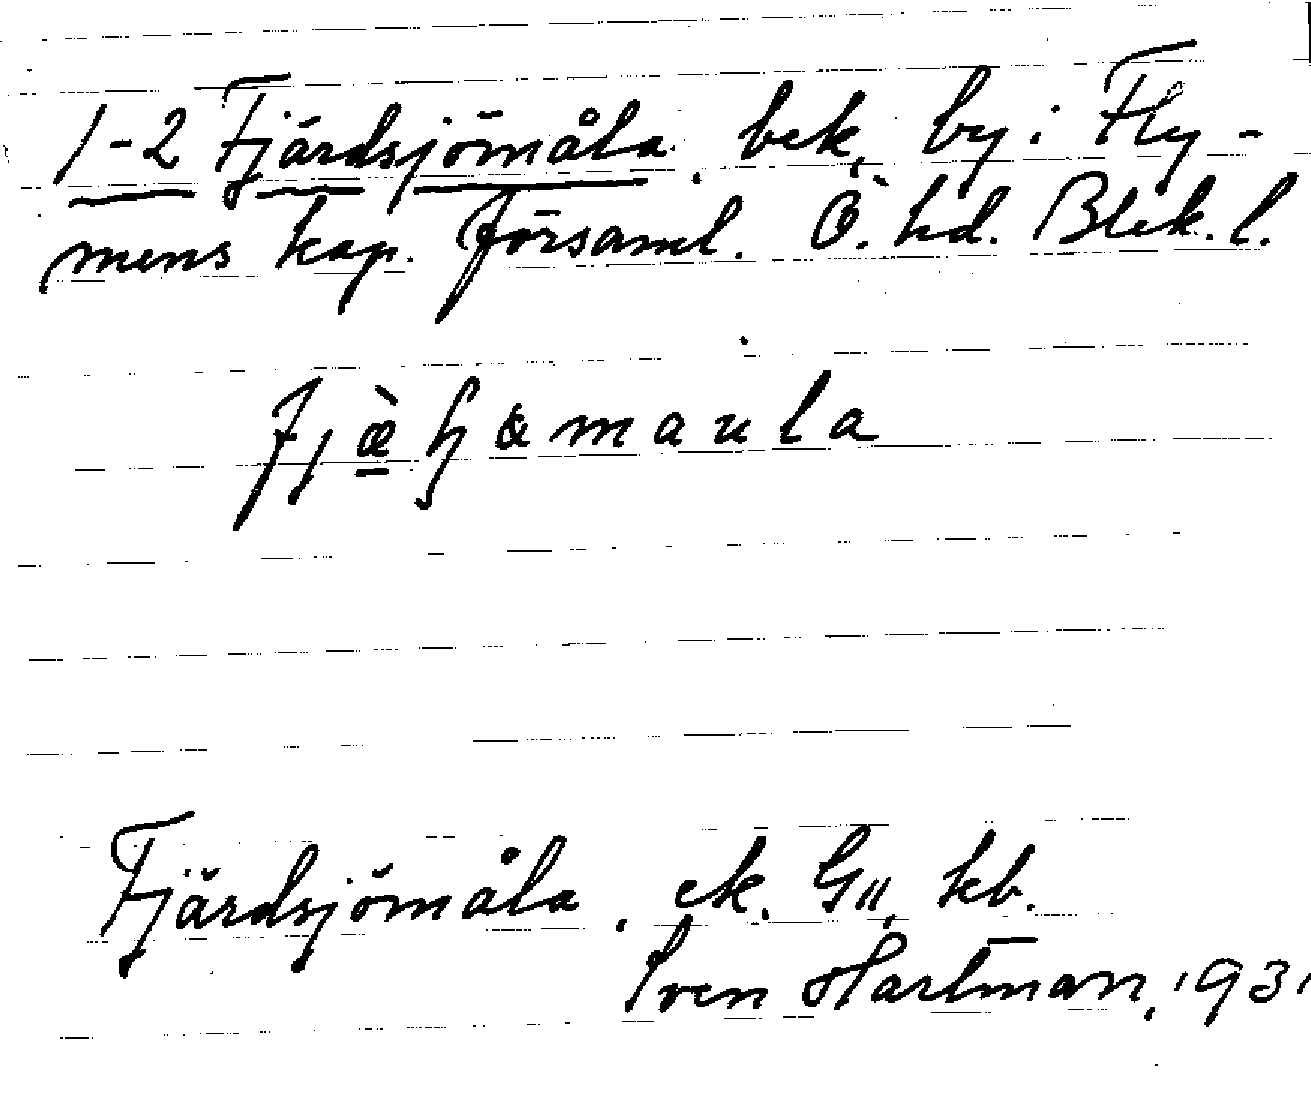 1-2 Fjärdsjömåla. bek, by i Fly-
mens kap. församl. Ö. hd. Blek. l.
Fjärdsjömåla. ek. G11, kb.
Sven Hartman, 1931